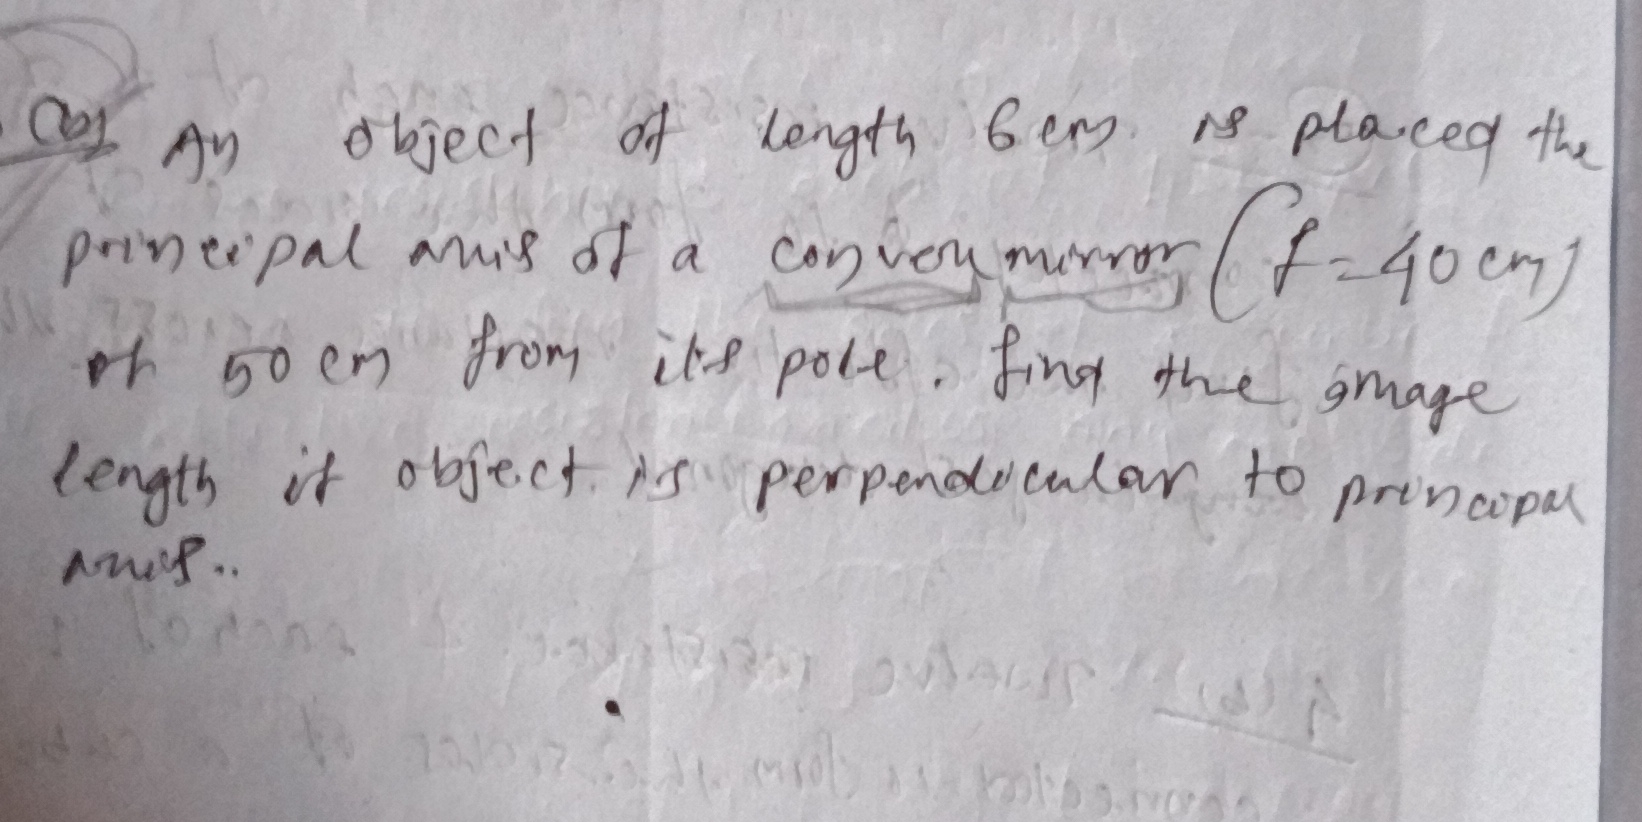 An object of length 6 cm is placed the
principal axis of a convex mirror (f = 40 cm)
at 50 cm from its pole. find the image
length if object is perpendicular to principal
axis..